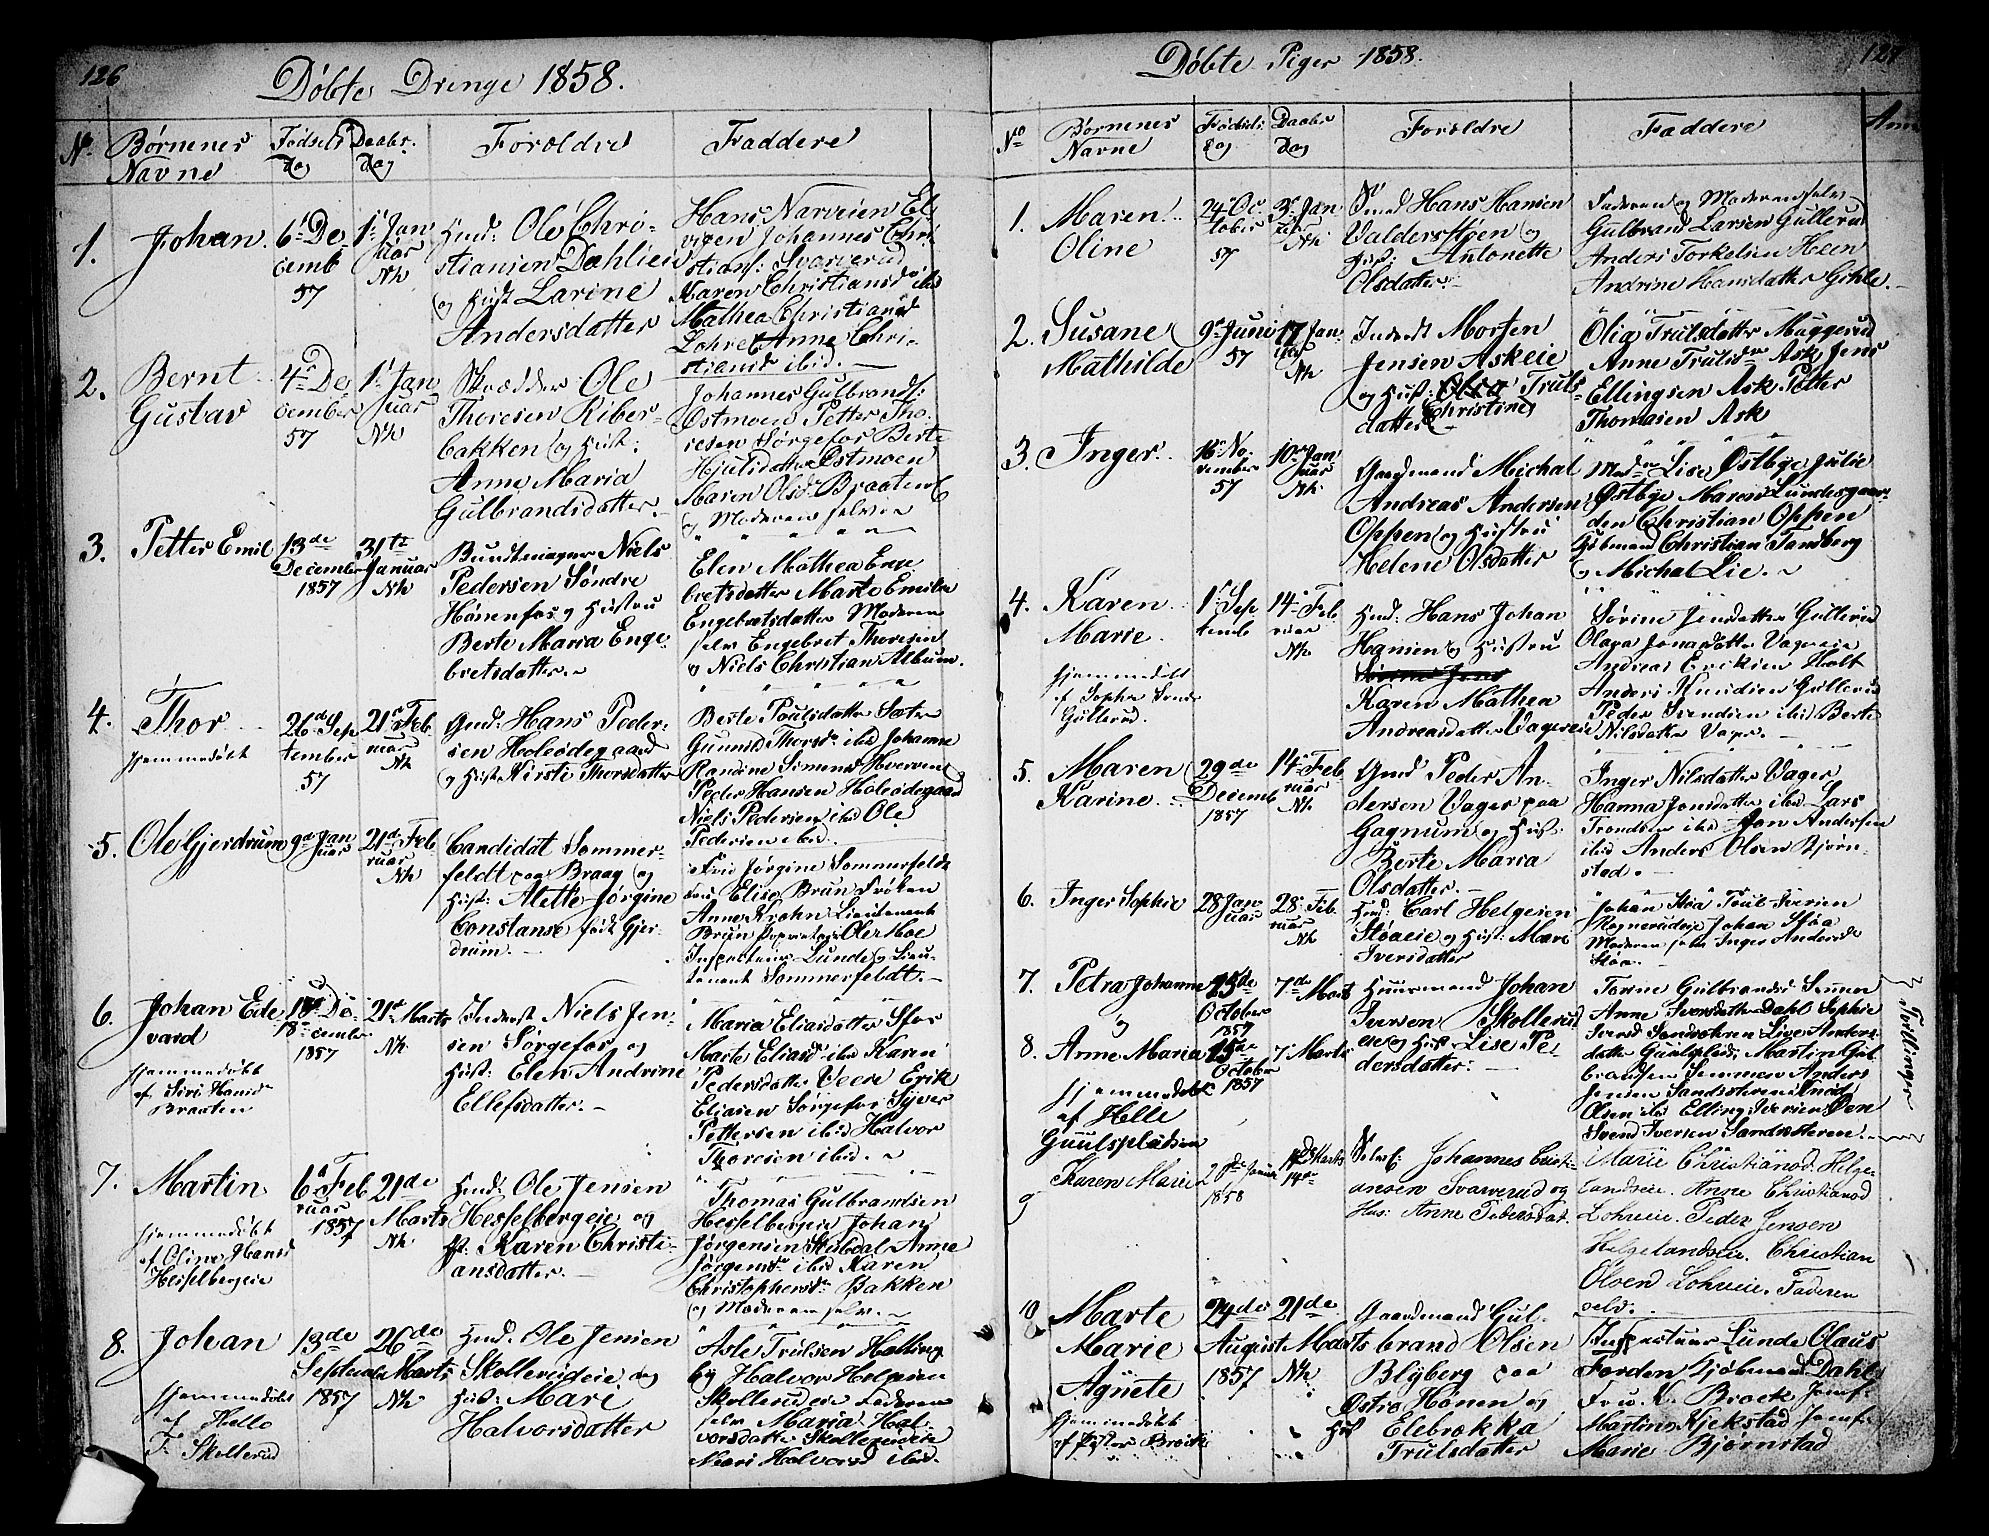 126
Döbte Drenge 1858.
No. Börnenes Navne
Födsels Dag
Daabs Dag
Forældre
Faddere
1. Johan
6te December 57
1ste Januar Nk
Huusd: Ole Christiansen Dahlien og Hust Larine Andersdatter
Hans Narverien
Johannes Christians: Svarverud
Karen Christiansd ibid
Mathea Christiansd
Lohre Anne Christiansd ibid.
2. Bernt Gustav
4de December 57
1ste Januar Nk
Skrædder Ole Thoresen Riberbakken og Hust: Anne Maria Gulbrandsdatter
Johannes Gulbrands:
Östmoen Petter Thoresen Sörgefos Berte
Hjulsdatter Östmoen
Maren Olsdr Braaten
og Moderen selv
3. Petter Emil
13de December 1857
31te Januar Nk
Bundtmager Niels Pedersen Söndre Hönenfos og Hustru Berte Maria Engebretsdatter
Elen Mathea Engebretsdatter Marte Emilie
Engebretsdatter Moderen
selv Engebret Thoresen
og Niels Christian Album.
4. Thor
hjemmedöbt
26de September 57
21de Februar Nk
Gmd: Hans Pedersen Holeödegaard og Hust Kirsti Thorsdatter
Berte Poulsdatter Sæter
Gunnild Thorsdr ibid Johanne
Randine Simens Hverven
Peder Hansen Holeödegaard
Niels Pedersen ibid Ole
Pedersen ibid
5. Ole Gjerdrum
9de Januar
21de Februar Nk
Candidat Sommerfeldt paa Braag og Hust: Alette Jörgine Constanse föd Gjerdrum.
Fru Jörgine Sommerfeldt
Elise Brun Fröken
Anne Krohn Lieutenant
Brun Proprietair Oler Moe
Inspecteur Lunde og Lieutenant Sommerfeldt.
6. Johan Edevard
hjemmedöbt
af Siri Hansdr
Braaten
18de December 1857
21de Marts Nk
Inderst Niels Jensen Sörgefos og Hust: Elen Andrine Ellefsdatter.
Maria Eliasdatter
Marte Eliasdr ibid Karen
Pedersdatter Veere Erik
Eliasen Sörgefos Syver
Pettersen ibid Halvor
Thoresen ibid.
7. Martin
hjemmedöbt
af Oline Hansd
Hesselbergeie
6te Februar 1857
21de Marts Nk
Huusd: Ole Jensen Hesselbergeie og H: Karen Christiansdatter.
Thomas Gulbrandsen
Hesselbergeie Johan
Jörgensen Skiledal Anne
Jörgensdr ibid Karen
Christophersdr Bakken
og Moderen selv.
8. Johan
hjemmedöbt
af Helle
T. Skollerud
13de September 1857
26de Marts Nk
Huusd: Ole Jensen Skollerudeie og Hust: Mari Halvorsdatter
Asle Trulsen Hallingby Halvor Helgesen
Skollerudeie Faderen
selv Maria Halvorsdatter Skollerudeie
Mari Halvorsd ibid.
127
Döbte Piger 1858.
No Börnenes Navne
Födsels dag
Daabs Dag
Forældre
Faddere
Anm
1. Maren Oline
24de October 57
3de Januar Nk
Smed Hans Hansen Valderstöen og Hust: Antonette Olsdatter
Faderen og Moderen selv
Gulbrand Larsen Gullerud
Anders Torkelsen Heen
Andrine Hansdatter Gihle.
2. Susane Mathilde
9de Juni 57
17de Jan Nk
Inderst Morten Jensen Askeie og Hust: Olia Christine Trulsdatter
Olia Trulsdatter Muggerud
Anne Trulsdr Ask Jens
Ellingsen Ask Petter
Thomasen Ask
3. Inger
16de November 57
10de Januar Nk
Gaardmand Michal Andreas Andersen Oppen og Hustru Helene Olsdatter
Mad. Lise Östbye Julie
Östbye Maren Lundesgaarden Christian Oppen
Kjöbmand Christian Tandberg
og Michal Lie.
4. Karen Marie
hjemmedöbt
af Sophie
Gullerud.
1ste Septemb
14de Februar Nk
Huusd: Hans Johan Hansen og Hustru Sörine Jens Karen Mathea Andreasdatter Vagereie
Sörine Jensdatter Gullerud
Olava Jonasdatter Vagereie
Andreas Ericksen Holt
Anders Knudsen Gullerud
Peder Svendsen ibid Berte
Nilsdatter Vager.
5. Maren Karine
29de Decemb 1857
14de Februar Nk
Gmd Peder Andersen Vager paa Gagnum og Hust: Berte Maria Olsdatter.
Inger Nilsdatter Vager
Hanna Jonsdatter ibid Lars
Trondsen ibid Jon Andersen
ibid Anders Olsen Björnstad.
6. Inger Sophie
28 Januar
28de Februar Nk
Huusd: Carl Helgesen Stöaeie og Hust: Mari Iversdatter
Johan Stöa Poul Iversen
Ragnerudeie Johan Stöa
Moderen selv Inger Andersdr
Stöa.
7. Petra Johanne
25de October 1857
7de Marts
Huusmand Johan Iversen Skollerudeie og Hust: Lise Pedersdatter:
Torine Gulbrandsd Semmen
Anne Svendsdatter Dahl Sophie
Svend Sandsöteren Live Andersdatter Guulsplads Martin Gulbrandsen Semmen Anders
Jensen Sandsöteren Knud
Olsen ibid Elling Iversen Öen
Svend Iversen Sandsöteren.
8. Anne Maria
hjemmedöbte
af Helle
Guulspladsen
25de October 1857
7de Marts
Tvillinger
9 Karen Marie
2den Januar 1858
14de Marts
Selvei: Johannes Cristiansen Svarverud og Hus: Anne Pedersdat.
Marie Christiansd. Helgelandseie. Anne Christiansd
Lohreeie. Peder Jensen
Helgelandseie. Christian
Olsen Lohreeie. Faderen
selv.
10 Marte Marie Agnete
hjemmedöbt
af Brock
24de August 1857
21de Marts Nk
Gaardmand Gulbrand Olsen Blyberg paa Östre Hönen og Hust Elebrekka Trulsdatter
Inspecteur Lunde Olaus
Forden Kjöbmand Dahl
Frue K. Brock Jomf
Martins Kjekstad Jomf
Marie Björnstad